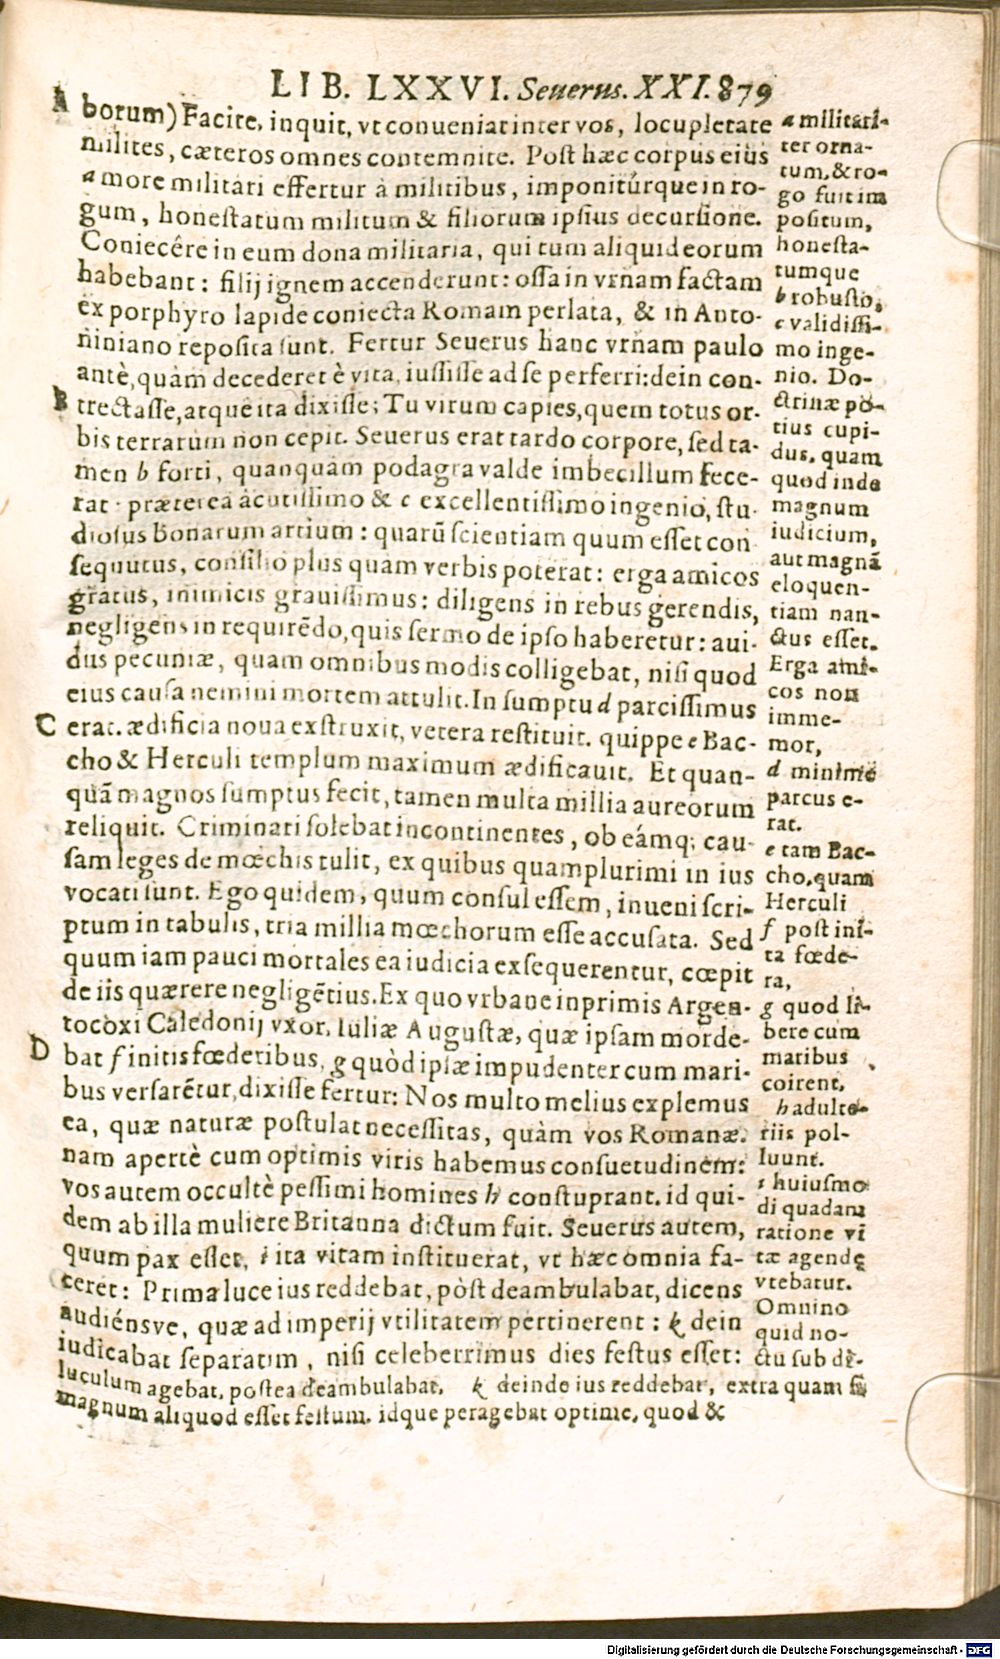 LIB. LXXVI. Seuerus. XXI. 879
A
borum) Facite, inquit, vt conueniat inter vos, locupletate
milites, cæteros omnes contemnite. Post hæc corpus eius
a more militari effertur à militibus, imponitúrque in ro-
gum, honestatum militum & filiorum ipsius decursione.
Coniecêre in eum dona militaria, qui tum aliquid eorum
habebant: filij ignem accenderunt: ossa in vrnam factam
ex porphyro lapide coniecta Romam perlata, & in Anto-
niniano reposita sunt. Fertur Seuerus hanc vrnam paulo
antè, quàm decederet è vita, iussisse ad se perferri: dein con-
B
trectasse, atque ita dixisse; Tu virum capies, quem totus or-
bis terrarum non cepit. Seuerus erat tardo corpore, sed ta-
men b forti, quanquàm podagra valde imbecillum fece-
rat. præterea acutissimo & c excellentissimo ingenio, stu-
diosus bonarum artium: quarũ scientiam quum esset con
sequutus, consilio plus quam verbis poterat: erga amicos
gratus, inimicis grauissimus: diligens in rebus gerendis,
negligens in requirēdo, quis sermo de ipso haberetur: aui-
dus pecuniæ, quam omnibus modis colligebat, nisi quod
eius causa nemini mortem attulit. In sumptu d parcissimus
C
erat. ædificia noua exstruxit, vetera restituit. quippe e Bac-
cho & Herculi templum maximum ædificauit. Et quan-
quã magnos sumptus fecit, tamen multa millia aureorum
reliquit. Criminari solebat incontinentes, ob eámq; cau-
sam leges de mœchis tulit, ex quibus quamplurimi in ius
vocati sunt. Ego quidem, quum consul essem, inueni scri-
ptum in tabulis, tria millia mœchorum esse accusata. Sed
quum iam pauci mortales ea iudicia exsequerentur, cœpit
de iis quærere negligētius. Ex quo vrbane inprimis Argen-
tocoxi Caledonij vxor, Iuliæ Augustæ, quæ ipsam morde-
D
bat f initis fœderibus, g quòd ipsæ impudenter cum mari-
bus versarētur, dixisse fertur: Nos multo melius explemus
ea, quæ naturæ postulat necessitas, quàm vos Romanæ.
nam apertè cum optimis viris habemus consuetudinem:
vos autem occultè pessimi homines h constuprant. id qui-
dem ab illa muliere Britanna dictum fuit. Seuerus autem,
quum pax esset, i ita vitam instituerat, vt hæc omnia fa-
ceret: Prima luce ius reddebat, pòst deambulabat, dicens
audiénsve, quæ ad imperij vtilitatem pertinerent: k dein
iudicabat separatim, nisi celeberrimus dies festus esset:
luculum agebat, postea deambulabat, k deinde ius reddebat, extra quam si
magnum aliquod esset festum. idque peragebat optime, quod &
a militari-
ter orna-
tum, & ro-
go fuit im
positum,
honesta-
tumque
b robusto,
c validissi-
mo inge-
nio. Do-
ctrinæ po-
tius cupi-
dus, quam
quod inde
magnum
iudicium,
aut magnã
eloquen-
tiam nan-
ctus esset.
Erga ami-
cos non
imme-
mor,
d minime
parcus e-
rat.
e tam Bac-
cho, quam
Herculi
f post ini-
ta fœde-
ra,
g quod li-
bere cum
maribus
coirent,
h adulte-
riis pol-
luunt.
i huiusmo
di quadam
ratione vi
tæ agendę
vtebatur.
Omnino
quid no-
ctu sub di-
Digitalisierung gefördert durch die Deutsche Forschungsgemeinschaft - DFG